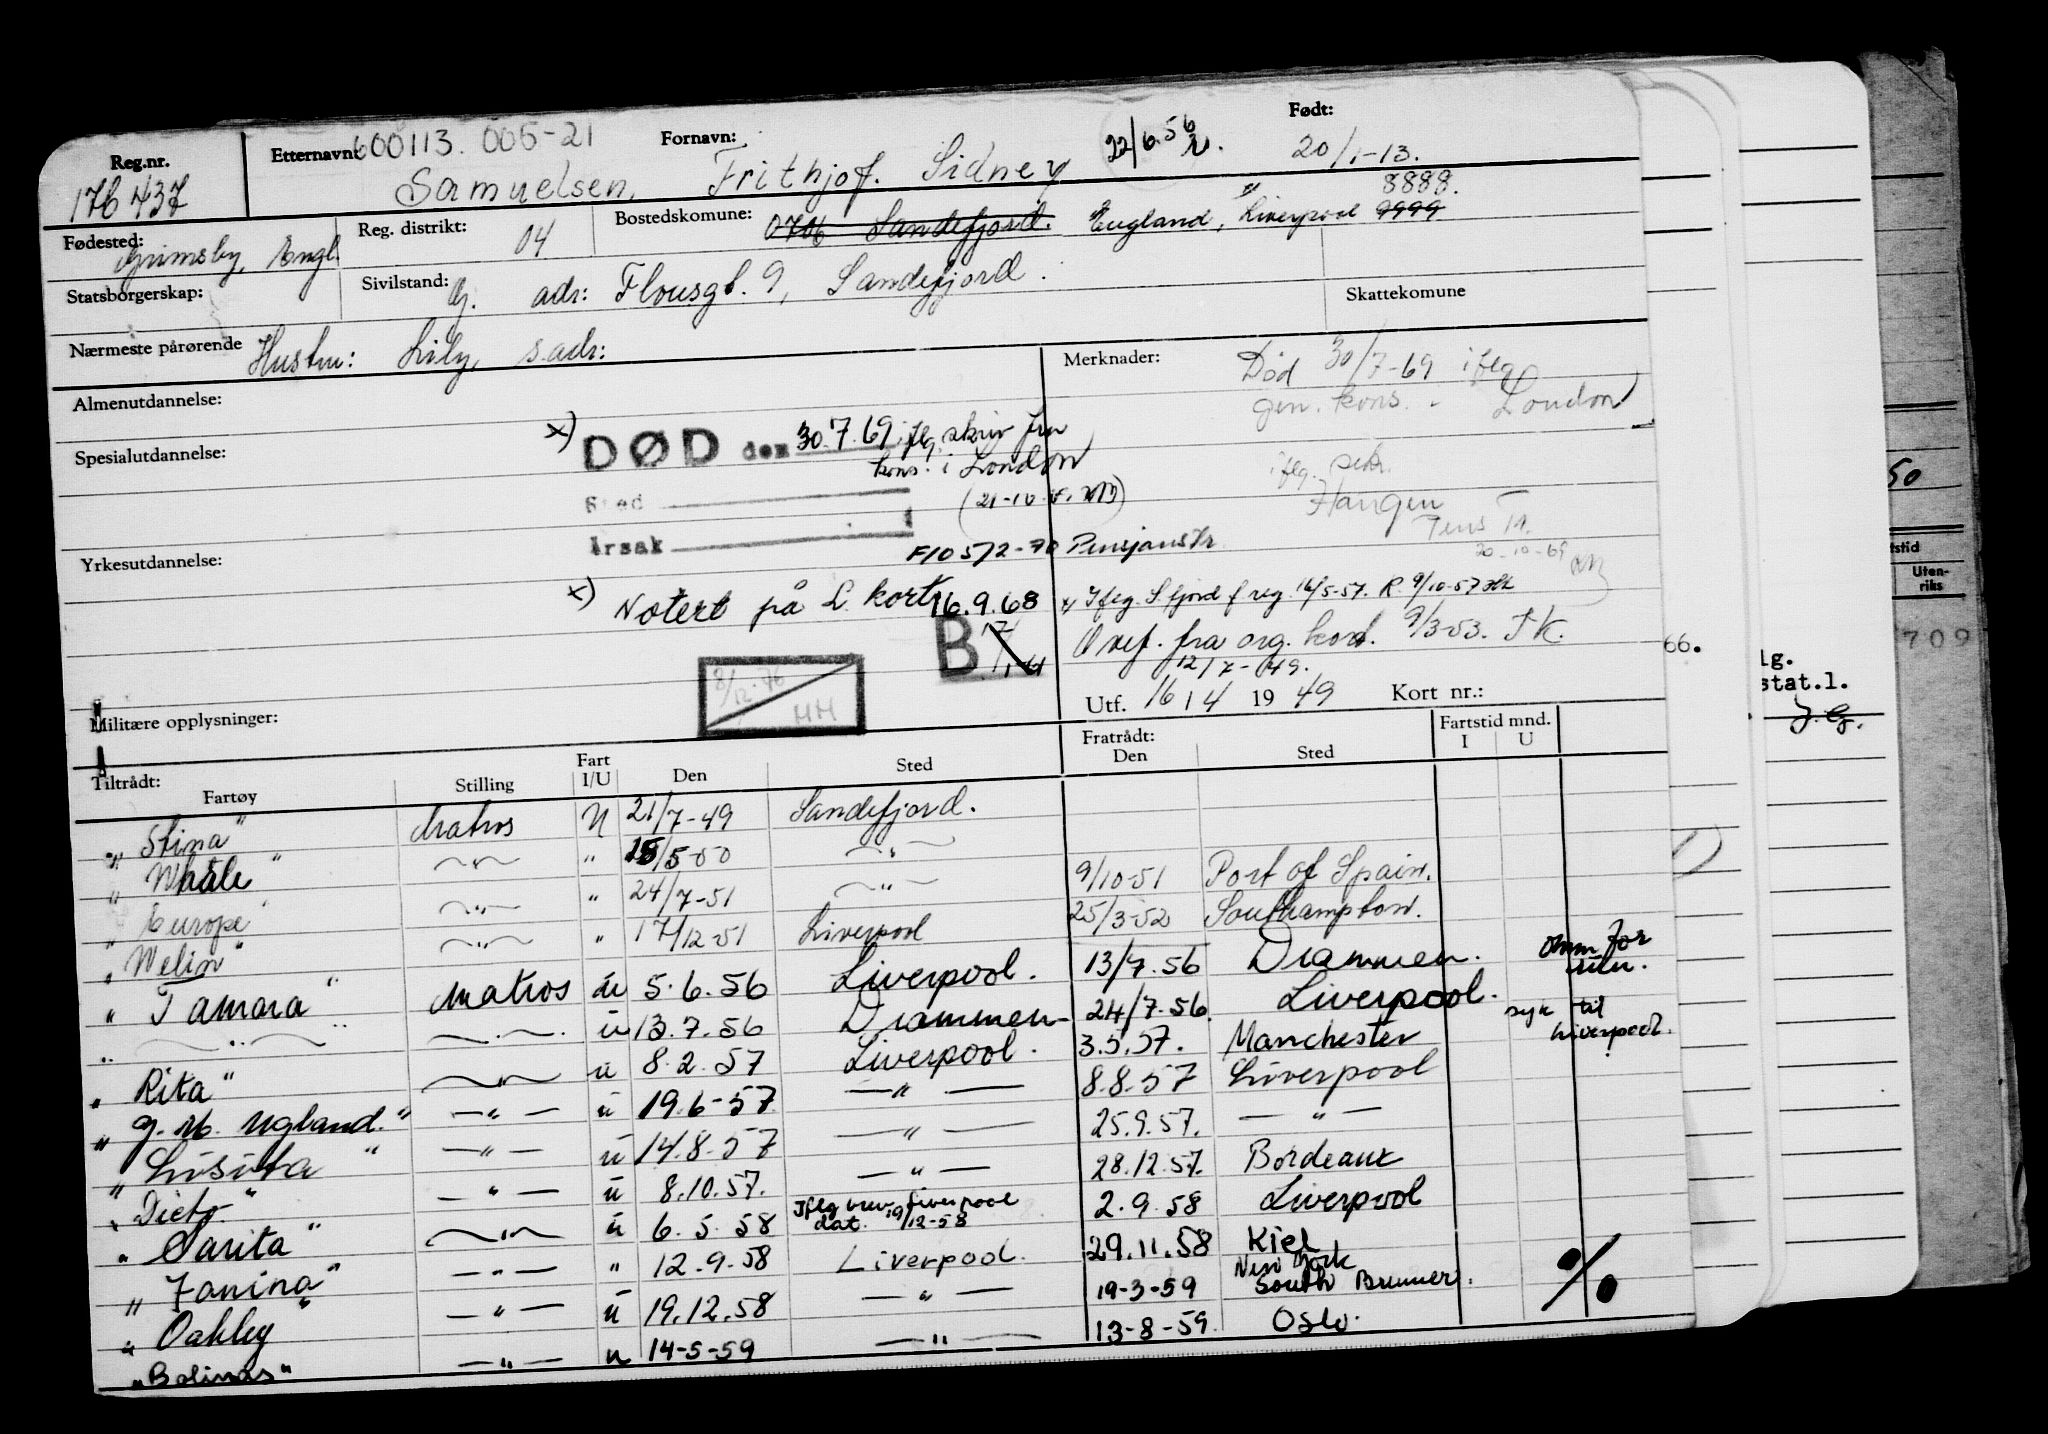 Reg.nr. 176 437
Etternavn: 600113. 005-21 Samuelsen,
Fornavn: Frithjof. Sidney
22/6.56
Født: 20/1-13.
Fødested: Grimsby, Engl.
Reg. distrikt: 04
Bostedskomune: 0706 Sandefjord. England, Liverpool 9999 8888.
Statsborgerskap:
Sivilstand: G. adr: Flousgt. 9, Sandefjord.
Skattekomune
Nærmeste pårørende Hustru: Lily, s.adr:
Merknader: Død 30/7-69 iflg
gen. kons. - London
Almenutdannelse:
x) DØD den 30.7.69 iflg skriv fra
kons. i London
Spesialutdannelse:
Sted
iflg. sekr.
Haugen
Årsak
20-10-69
F10 5/2-70 Pensjonstr
Yrkesutdannelse:
x) Notert på L. kort 16.9.68
x) Iflg. S.fjord f reg. 16/5-57. R. 9/10-57
B 17/1-61
Ovf. fra org. kort. 9/3-53. TK.
12/7-49.
8/12-70
HH
Utf. 16/4 1949 Kort nr.:
Militære opplysninger:
Tiltrådt:
Fartøy Stilling Fart I/U Den Sted
Fratrådt: Den Sted Fartstid mnd. I U
"Stina" Matros U 21/7-49 Sandefjord.
"Whale" —"— " 25/5-50 —"—
"Europe" —"— " 24/7-51 —"— 9/10-51 Port of Spain.
"Welin" —"— " 17/12-51 Liverpool 25/3-52 Southampton.
"Tamara" Matros u 5.6.56 Liverpool. 13/7.56 Drammen.
" —"— —"— u 13.7.56 Drammen 24/7.56. Liverpool. syk til Liverpool.
"Rita" —"— u 8.2.57 Liverpool. 3.5.57. Manchester
"G. M. Ugland." —"— u 19.6-57 —"— 8.8.57 Liverpool
"Lisita" —"— u 14.8.57 —"— 25.9.57. —"—
"Dicto" —"— u 8.10.57. —"— 28.12.57. Bordeaux
"Sarita" —"— u 6.5.58 Iflg brev Liverpool dat. 19/12-58 2.9.58 Liverpool
"Janina" —"— " 12.9.58 Liverpool. 29.11.58 Kiel
"Oakley" —"— u 19.12.58 —"— 19-3-59 New York South Brunner.
"Bolinas" —"— u 14-5-59 —"— 13-8-59. Oslo.
%
66.
1)
lg.
stat.l.
J.G.
50
tstid
Uten-
riks
709